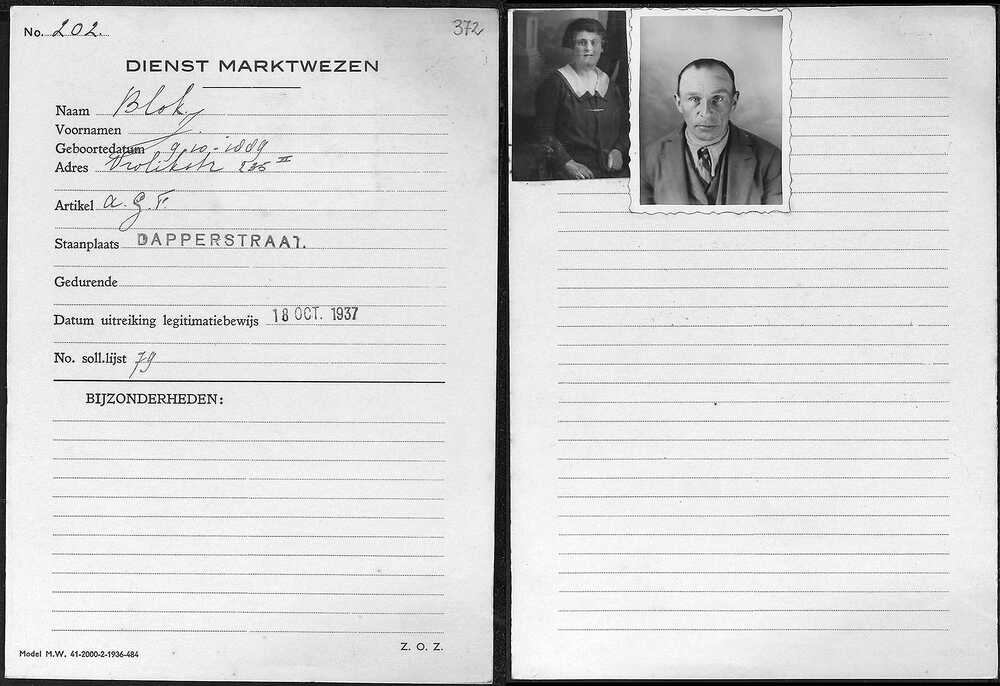 No. 202.
372
DIENST MARKTWEZEN
Naam Blok
Voornamen J.
Geboortedatum 9-10-1889
Adres Vrolikstr II
Artikel a.g.f.
Staanplaats DAPPERSTRAAT.
Gedurende
Datum uitreiking legitimatiebewijs 18 OCT. 1937
No. soll.lijst 79
BIJZONDERHEDEN:
Model M.W. 41-2000-2-1936-484
Z. O. Z.